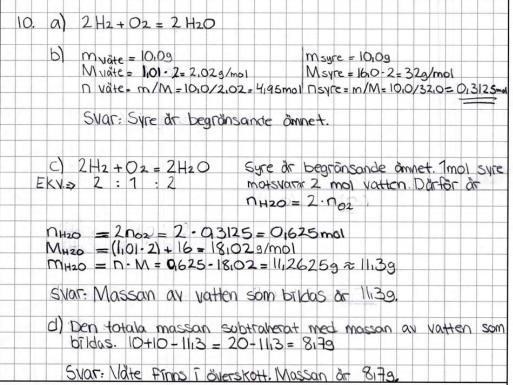 10. a) 2H₂ + O₂ = 2H₂O
b) m väte = 10,0g
M väte = 1,01 · 2 = 2,02g/mol
n väte = m/M = 10,0/2,02 = 4,95mol
m syre = 10,0g
M syre = 16,0 · 2 = 32g/mol
n syre = m/M = 10,0/32,0 = 0,3125mol
Svar: Syre är begränsande ämnet.
c) 2H₂ + O₂ = 2H₂O
EKV.⇒ 2 : 1 : 2
Syre är begränsande ämnet. 1mol syre
motsvarar 2 mol vatten. Därför är
nH₂O = 2 · nO₂
nH₂O = 2nO₂ = 2 · 0,3125 = 0,625mol
MH₂O = (1,01 · 2) + 16 = 18,02g/mol
mH₂O = n · M = 0,625 · 18,02 = 11,2625g ≈ 11,3g
Svar: Massan av vatten som bildas är 11,3g.
d) Den totala massan subtraherat med massan av vatten som
bildas. 10+10-11,3 = 20-11,3 = 8,7g
Svar: Väte finns i överskott. Massan är 8,7g.